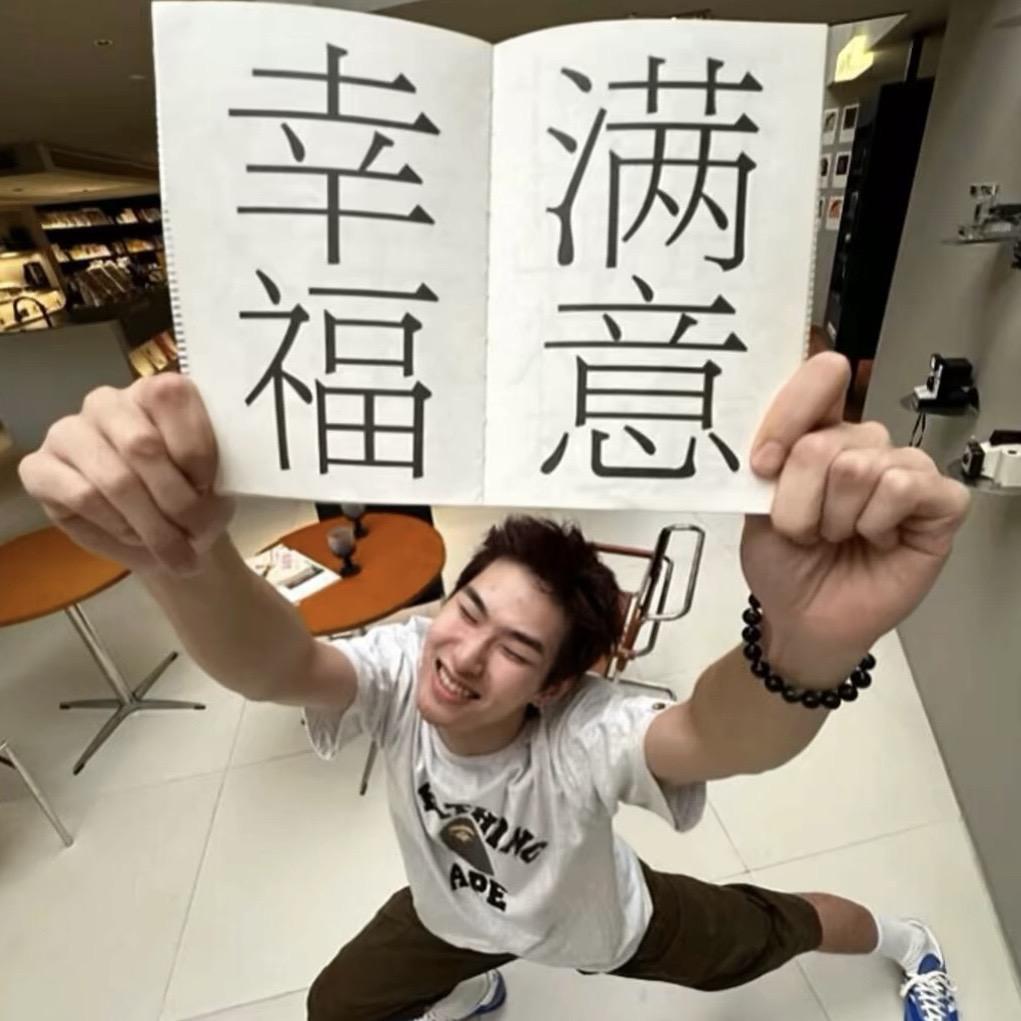 幸福
满意
BATHING
APE